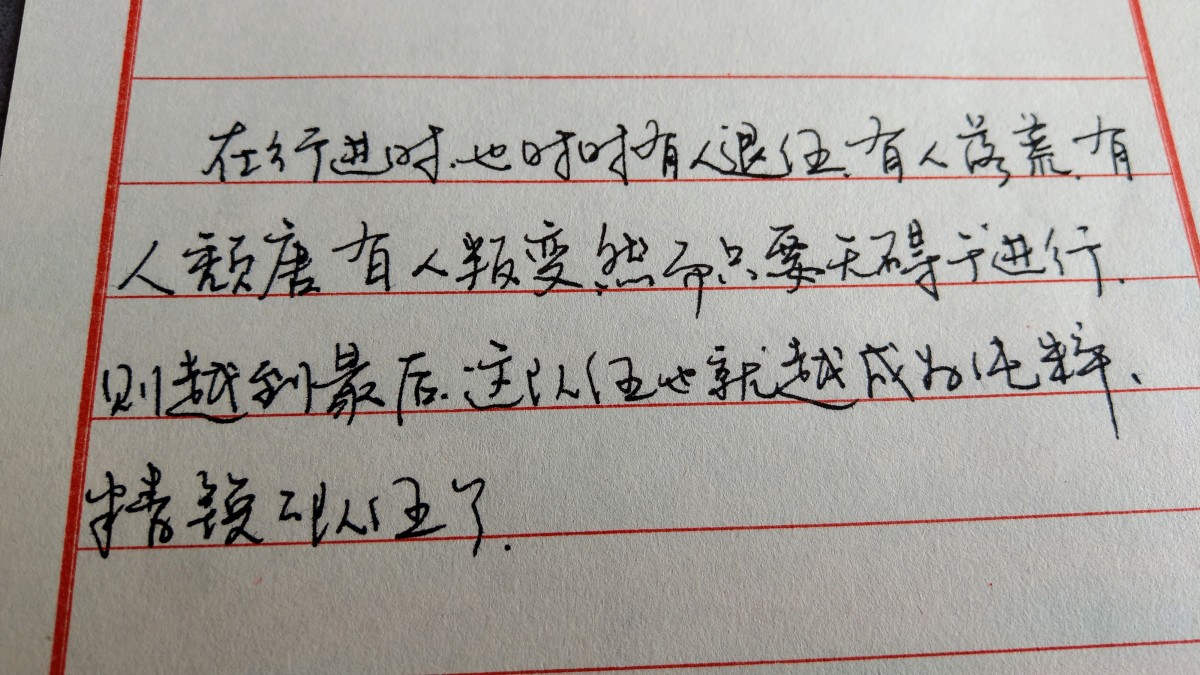 在行进时.也时时有人退伍.有人落荒.有
人颓唐有人叛变.然而只要无碍于进行.
则越到最后.这队伍也就越成为纯粹、
精锐的队伍了.